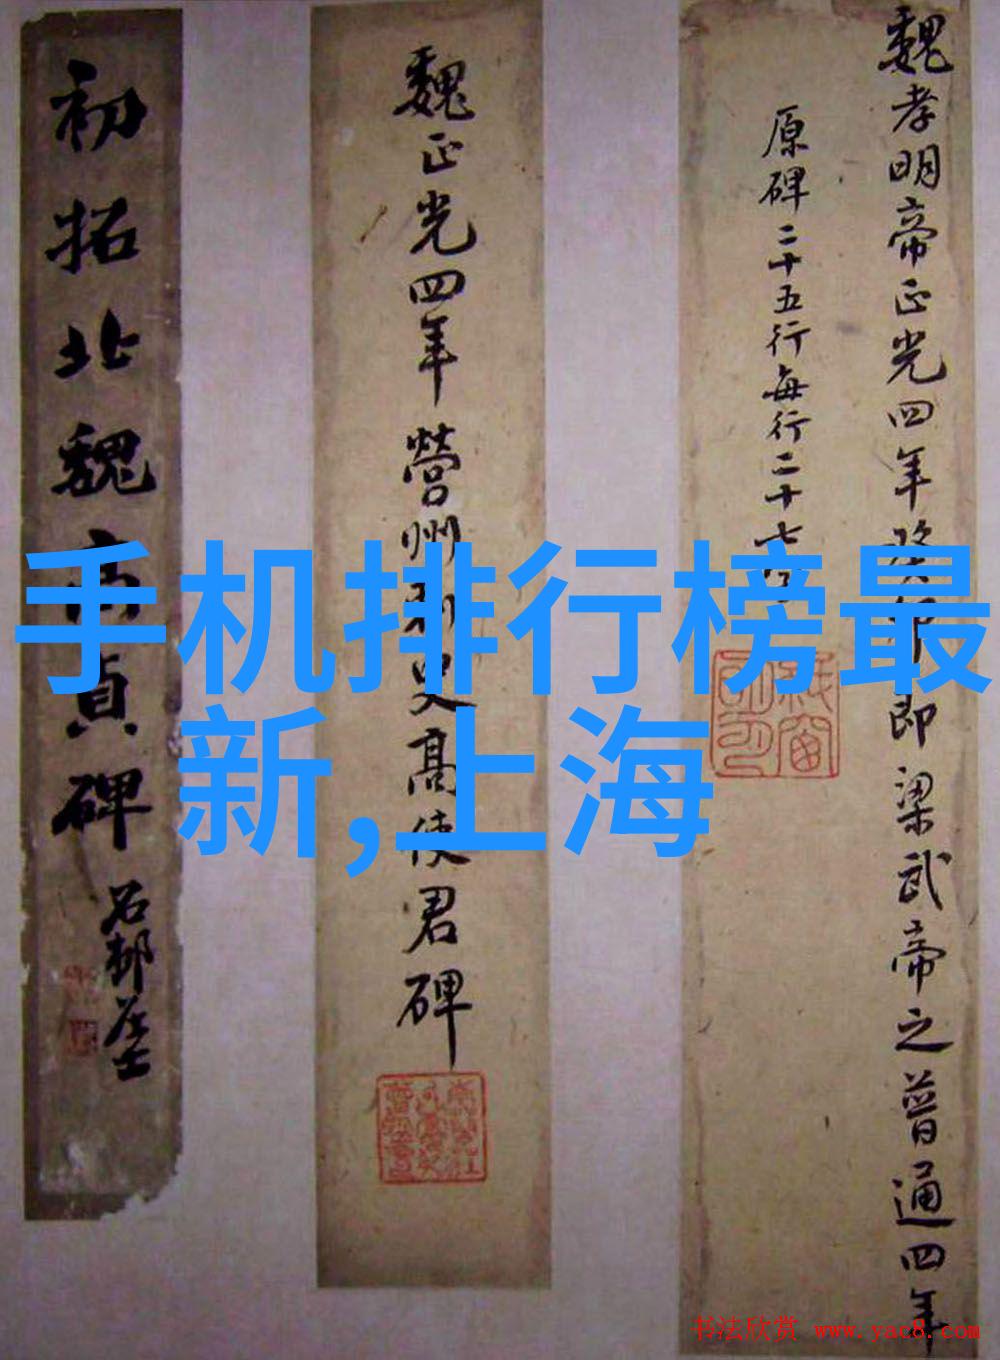 魏孝明帝正光四年癸卯即梁武帝之普通四年
原碑二十五行每行二十七
魏正光四年營州刺史高使君碑
初拓北魏高貞碑
石邨居士
手机排行榜最
新,上海
书法欣赏 www.yac8.com